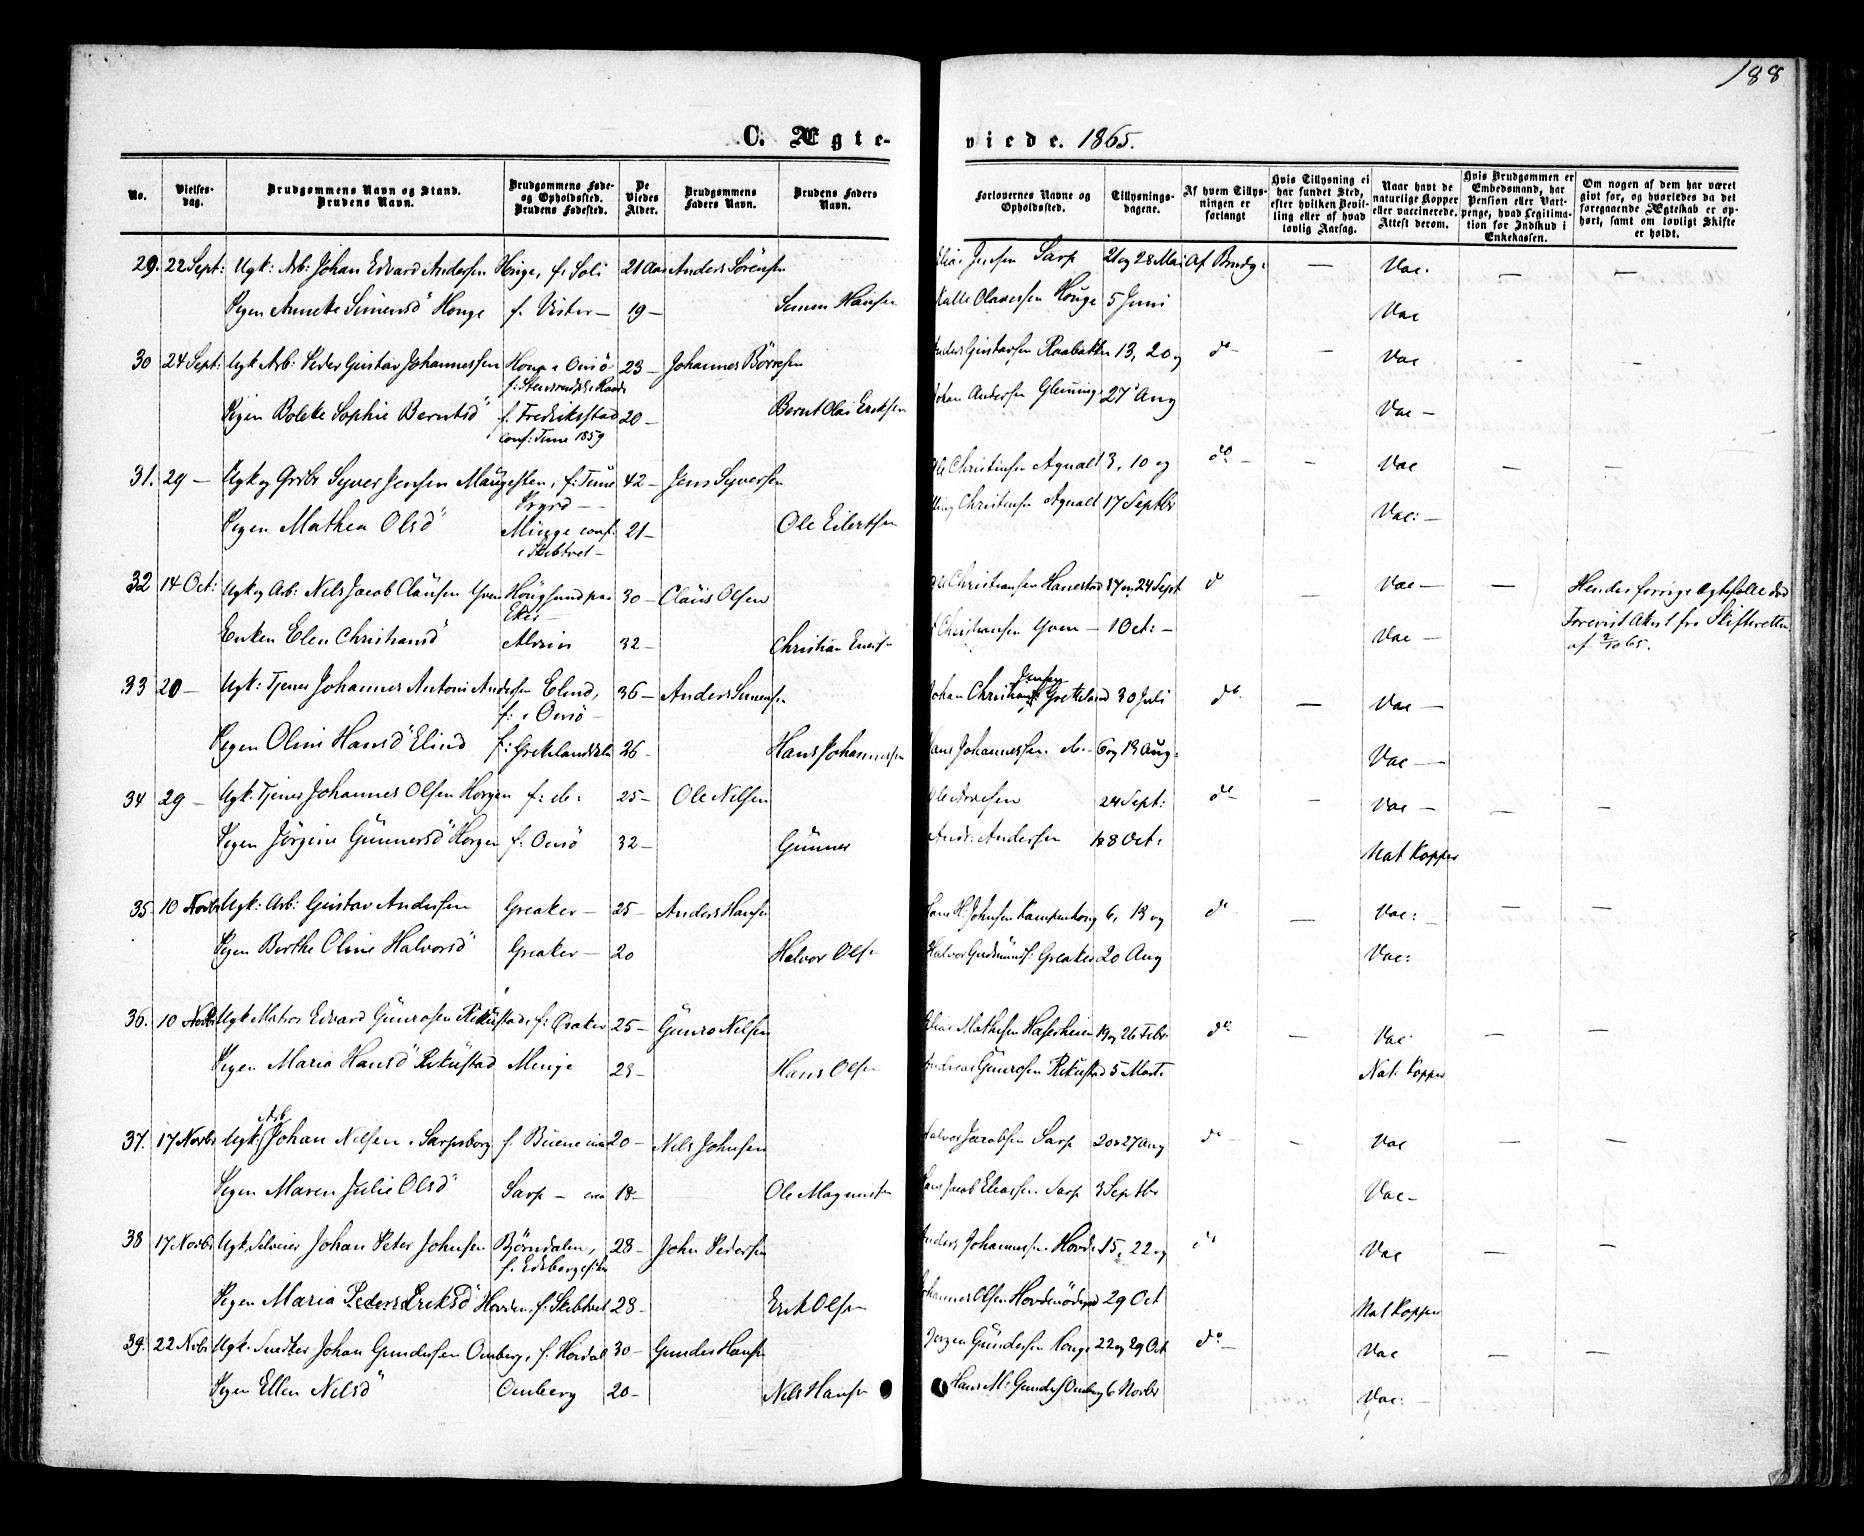 188
C. Ægte- viede. 1865.
No.
Vielses-dag.
Brudgommens Navn og Stand. Brudens Navn.
Brudgommens Føde- og Opholdssted. Brudens Fødested.
De Viedes Alder.
Brudgommens Faders Navn.
Brudens Faders Navn.
Forlovernes Navne og Opholdssted.
Tillysnings-dagene.
Af hvem Tillys-ningen er forlangt
Hvis Tillysning ei har fundet Sted, efter hvilken Bevil-ling eller af hvad lovlig Aarsag.
Naar havt de naturlige Kopper eller vaccinerede. Attest derom.
Hvis Brudgommen er Embedsmand, har Pension eller Vart-penge, hvad Legitima-tion for Indskud i Enkekassen.
Om nogen af dem har været givt før, og hvorledes da det foregaaende Ægteskab er op-hørt, samt om lovligt Skifte er holdt.
29. 22 Sept: Ugk: Arb: Johan Edvard Andersen Houge, f. Soli 21 Aar Anders Sörensen Jensen Sarp 21 og 28 Mai Af Brudg: — Vac. — —
Pigen Anneke Simensd Houge f. Vister — 19 — Simen Hansen Kalle Olavessen Houge 5 Juni Vac
30 24 Sept: Ugk Arb: Peder Gustav Johannessen i Onsö 23 — Johannes Börresen Anders Gustavsen 13, 20 og do — — Vac — —
Pigen Bolette Sophie Berntsd f. Fredriksstad 20 — Bernt Olai Eriksen Johan Andersen Glemminge 27 Aug Vac —
conf: Tune 1859
31. 29 — Ugk og Grdbr Syver Jensen Maugesten, f: Tune 42 — Jens Syversen Ole Christensen Agnalt 3, 10 og do — — Vac — —
Pigen Mathea Olsd Mügge conf: i Skibtvet — 21 — Ole Eilertsen Christensen Agnalt 17 Septbr Vac: —
32 14 Oct: Ugk og Arb: Nils Jacob Claüsen Yven Höugsund paa Eker — 30 — Claüs Olsen Ole Christiansen Hanestad 17 og 24 Sept do — Vac — — Hendes forrige Ægtefælle död
Enken Elen Christiansd 32 — Christian Christiansen Yven — 1 Oct: — Vac — Forevist Attest fra Skifteretten
af 2/10 65.
33 20 — Ugk: Tjener Johannes Antoni Andersen Elind, f: i Onsö — 36 — Anders Simensen Johan Christian Jensen Grekeland 30 Juli do — Vac —
Pigen Oline Hansd Elind f: 26 — Hans Johannessen Hans Johannessen do — 6 og 13 Aug: Vac —
34 29 — Ugk: Tjener Johannes Olsen Horgen f: do: 25 — Ole Nilsen Ole 24 Sept: do — — Vac — — —
Pigen Jörgine Günnersd Horgen f: Onsö 32 — Günner Andr: Andersen 1 & 8 Oct: Nat Kopper
35 10 Novbr Ugk: Arb: Gustav Andersen Greaker — 25 — Anders Hansen Hans H. Johnsen 6, 13 og do — Vac: — — —
Pigen Berthe Oline Halvorsd Greaker — 20 Halvor Olsen Halvor Gudmunds: Greaker 20 Aug Vac:
36. 10 Novbr Ugk Matros Edvard Günrosen Rikustad, f: Graaker 25 — Günro Nilsen Elias Mathisen 19 og 26 Febr do — Vac — —
Pigen Maria Hansd Rikustad Minge 23 — Hans Olsen Andreas Günrosen Rikustad 5 Marts Nat: Kopper
37. 17 Novbr Ugk: Arb Johan Nilsen i Sarpsborg f. 20 — Nils Johnsen Halvor Jacobsen Sarp 20 & 27 Aug do — Vac — —
Pigen Maren Julie Olsd Sarp — 18 — Ole Magnusen Hans Jacob Eliassen Sarp 3 Septbr Vac —
38 17 Novbr Ugk, Selveier Johan Peter Johnsen Björndalen, 28 — John Pedersen Anders Johannessen Hovde 15, 22 og do Vac — —
Pigen Maria Pedersd Eriksd Hovden, f: Skibtvet 28 — Erik Olsen Johannes Olsen 29 Oct Nat Kopper
39. 22 Novbr Ugk: Snedker Johan Gundersen Omberg, f. 30 — Gunder Hansen Jörgen Gündersen 22 og 29 Oct do — Vac — —
Pigen Ellen Nilsd Omberg 20 — Nils Hansen Hans M: Gunders Omberg 6 Novbr Vac: —